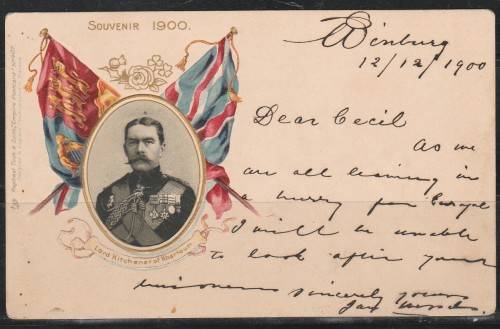 SOUVENIR 1900.
Winburg
12/12/1900
Dear Cecil
As we
are all leaving in
a hurry for Europe
I will be unable
to look after your
prisoners sincerely yours
Lord Kitchener of Khartoum